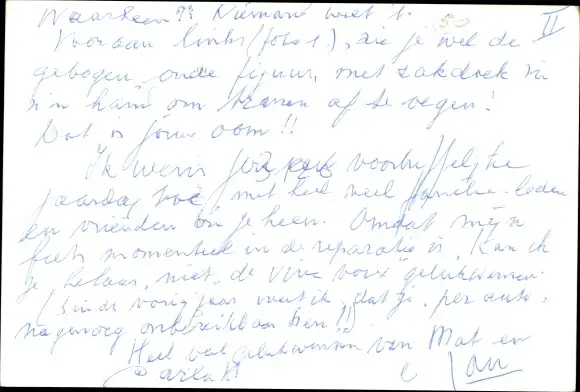 Waarheen?? Niemand weet 't. 50 II
Vooraan links (foto 1), zie je wel de
gebogen oude figuur, met zakdoek in
z'n hand om tranen af te vegen!
Dat is jouw oom!!
Ik wens je voortreffelijke
jaardag toe, met heel veel familie-leden
en vrienden om je heen. Omdat mijn
fiets momenteel in de reparatie is, kan ik
je helaas, niet "de vive voix" gelukwensen.
(Sinds vorig jaar weet ik, dat je, per auto,
nagenoeg onbereikbaar bent!!)
Heel veel gelukwensen van Mat en